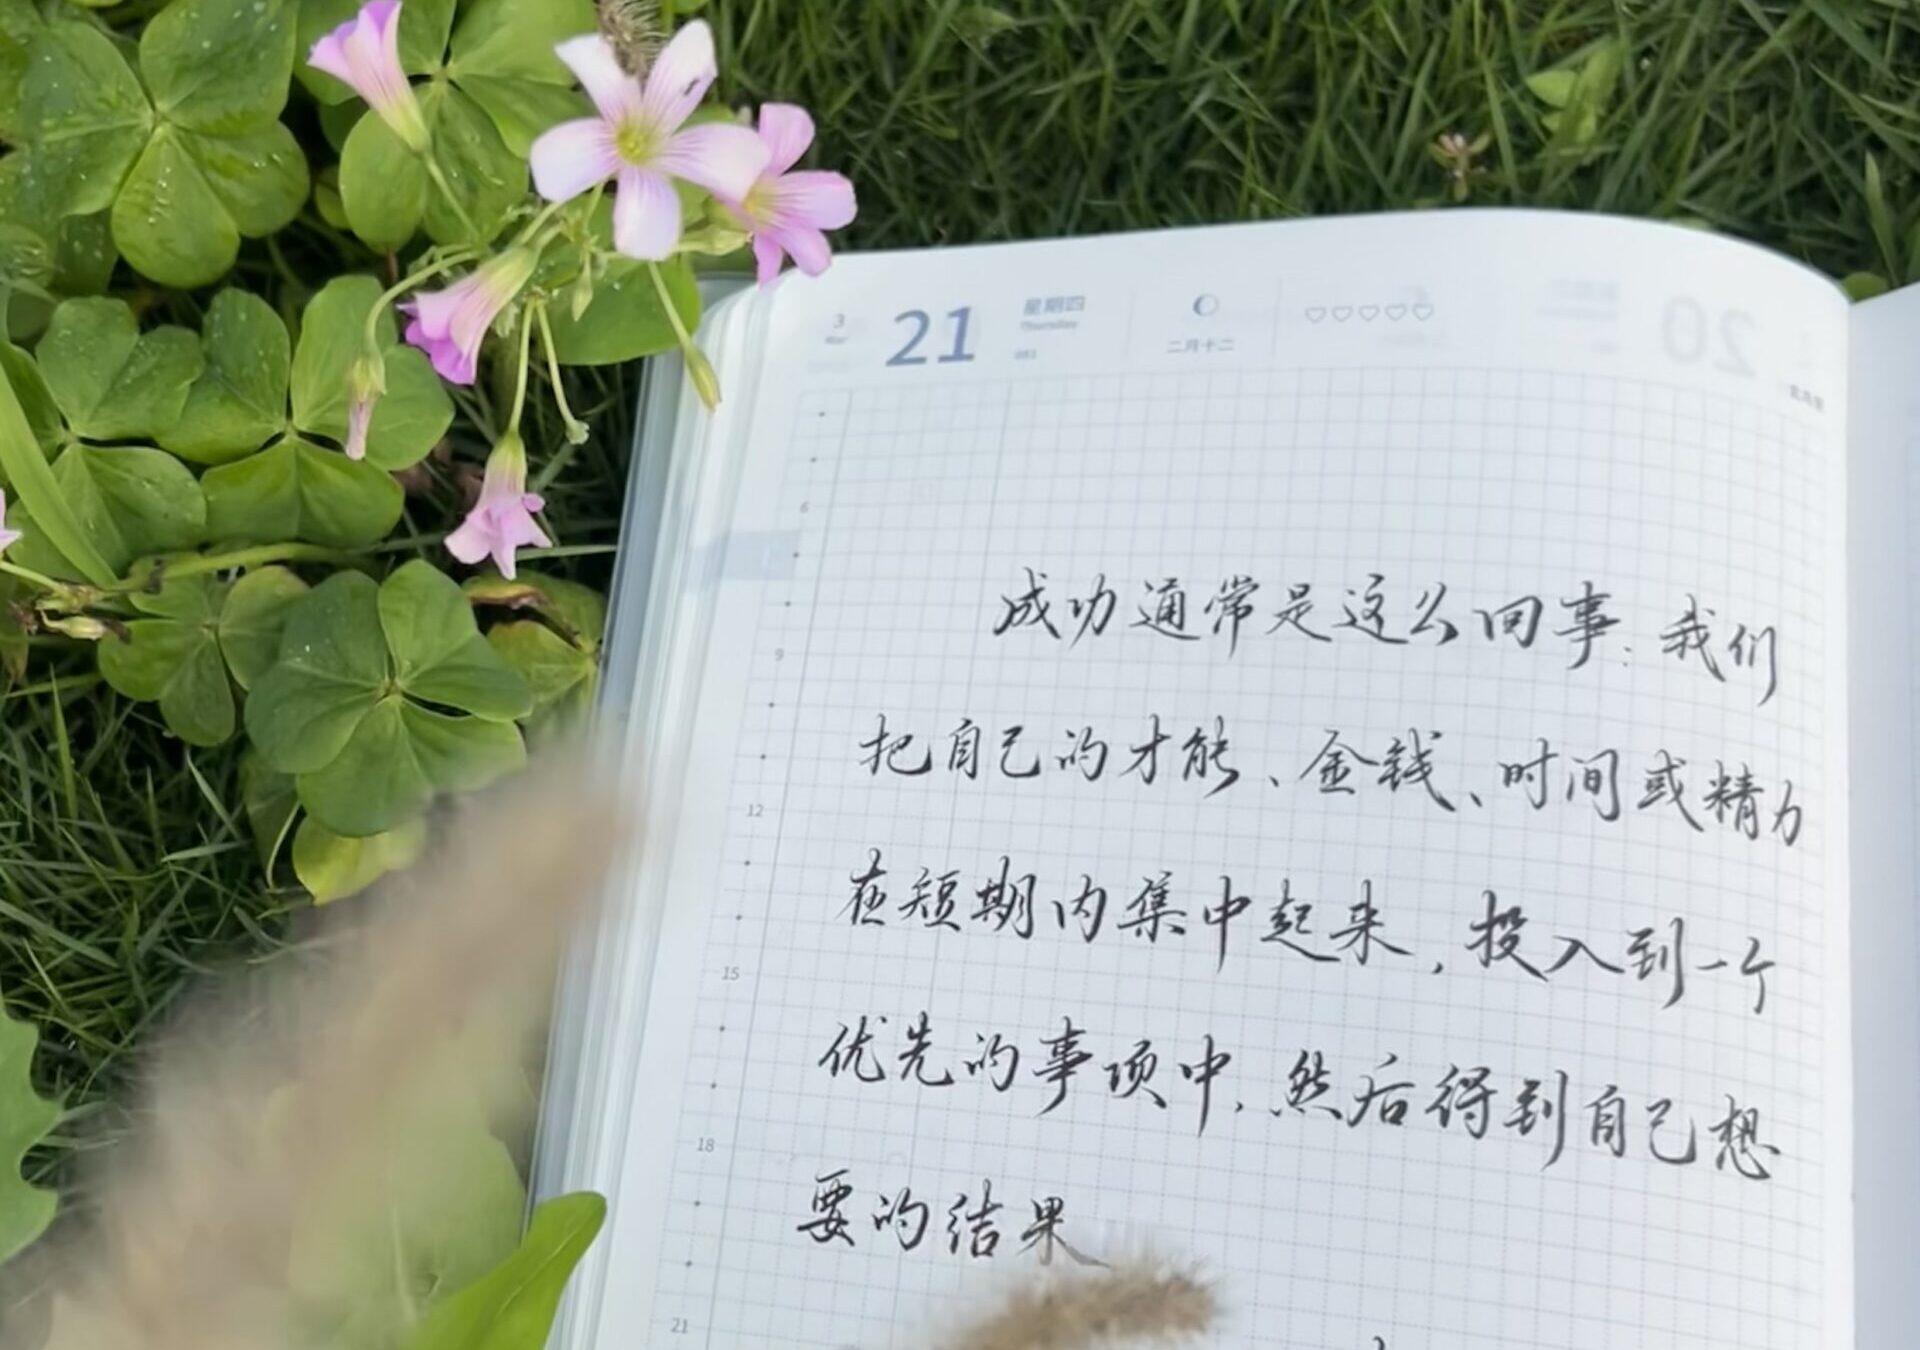 3
21
星期四
Thursday
081
二月十二
20
6
成功通常是这么回事:我们
9
把自己的才能、金钱、时间或精力
12
在短期内集中起来,投入到一个
15
优先的事项中,然后得到自己想
18
要的结果
21